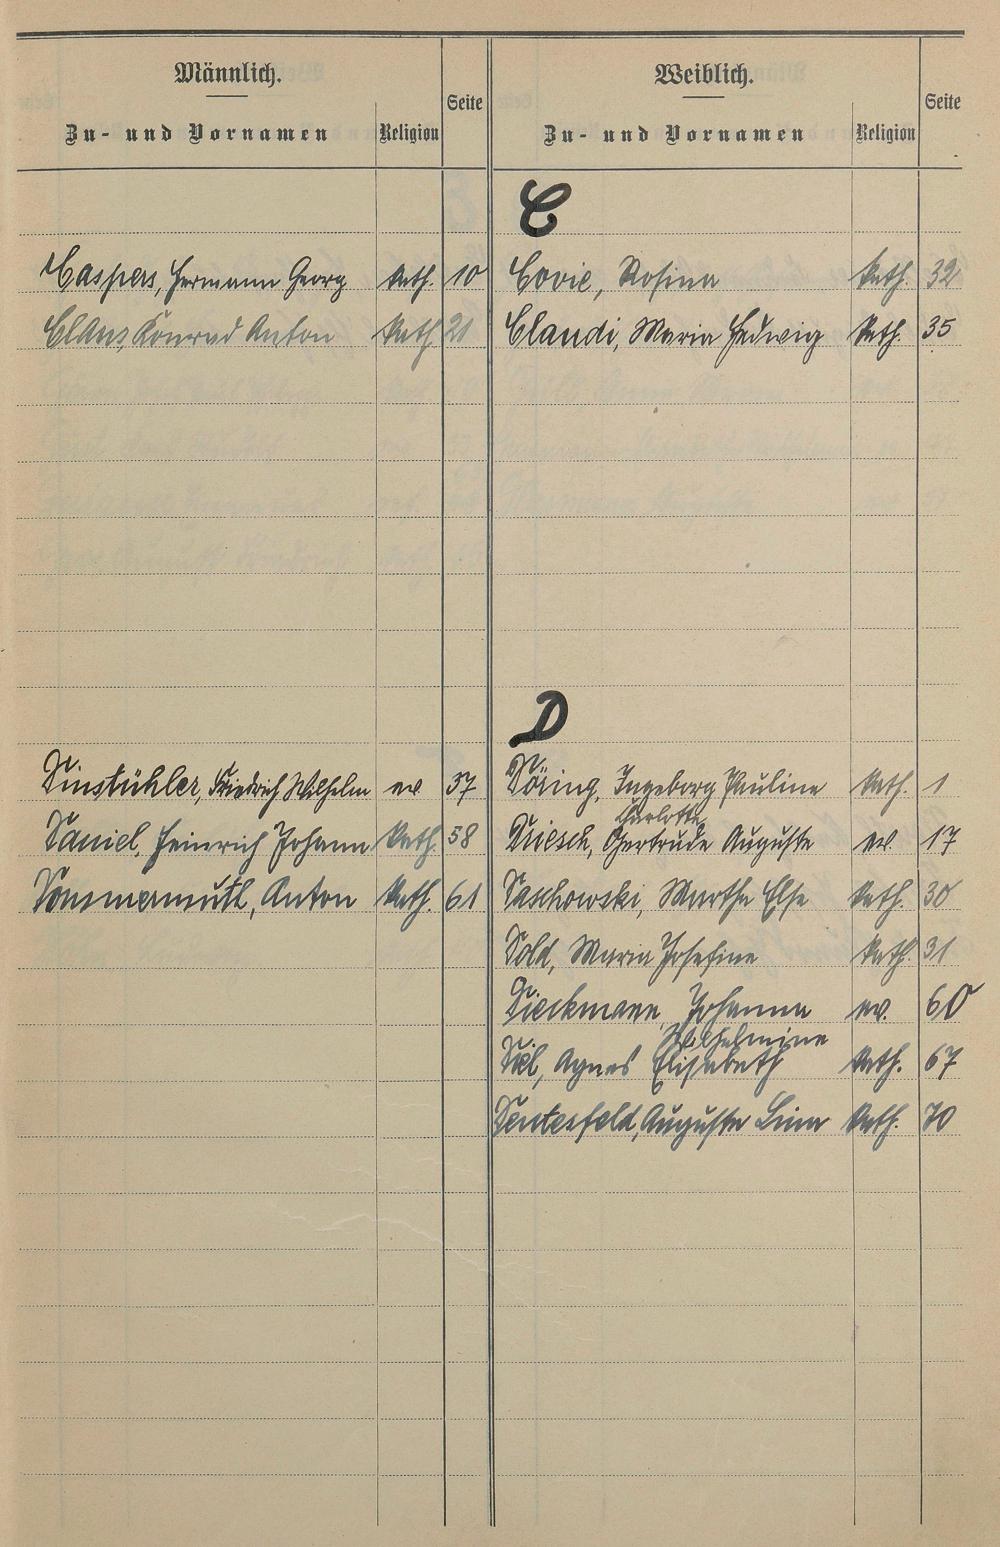 Männlich.
Zu- und Vornamen Religion Seite
Weiblich.
Zu- und Vornamen Religion Seite
C
Caspers, Hermann Georg kath. 10
Covic, Rosina kath. 32
Clans, Konrad Anton kath 21
Claudi, Maria Hedwig kath. 35
D
Dinstühler, Friedrich Wilhelm ev 37
Döring, Ingeborg Pauline kath. 1
Charlotte
Daniel, Heinrich Johann kath. 58
Driesch, Gertrude Auguste ev. 17
Dommermuth, Anton kath. 61
Daschowski, Martha Else kath. 30
Dold, Maria Josefine kath. 31
Dieckmann, Johanna ev. 60
Wilhelmine
Diel, Agnes Elisabeth kath. 67
Dentesfeld, Auguste Lina kath. 70